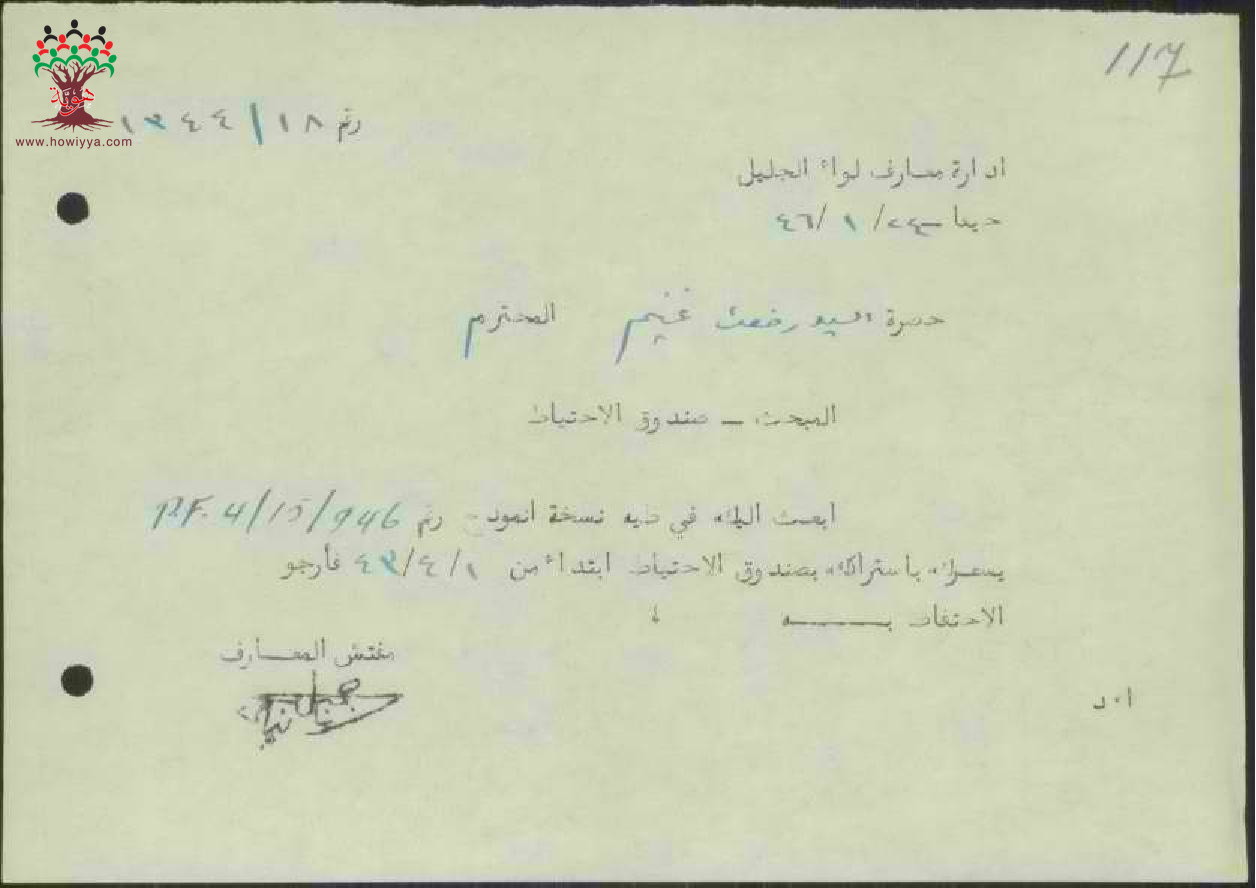 117
هوية
www.howiyya.com
رقم ١٨/١٣٤٤
ادارة معارف لواء الجليل
حيفا – ٢٤/١/٤٦
حضرة السيد رفعت غنيم المحترم
المبحث – صندوق الاحتياط
ابعث اليك في طيه نسخة انموذج رقم P.F. 4/15/946
يشعرك باشتراكك بصندوق الاحتياط ابتداء من ١/٤/٤٣ فأرجو
الاحتفاظ بـــــه
مفتش المعارف
ا٠د